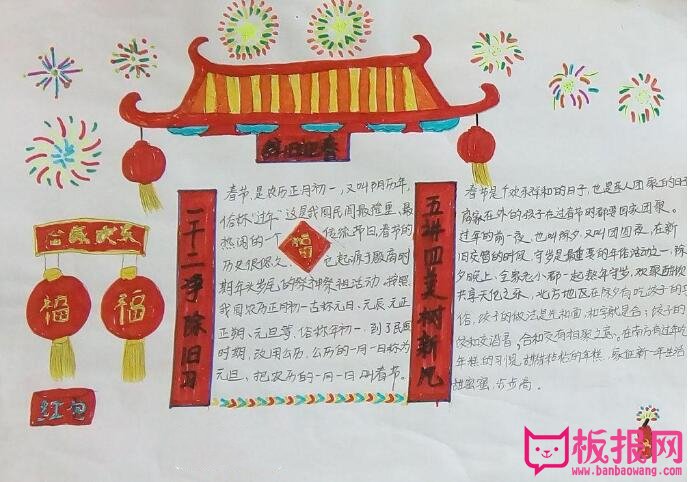 辞旧迎春
合家欢乐
福
福
红包
一干二净除旧习
五讲四美树新风
福
春节,是农历正月初一,又叫阴历年,
俗称"过年"这是我国民间最隆重、最
热闹的一个 传统节日,春节的
历史很悠久、它起源于殷商时
期年头岁尾的祭神祭祖活动,按照
我国农历正月初一古称元日、元辰元正
正朔、元旦等,俗称年初一,到了民国
时期,改用公历,公历的一月一日称为
元旦,把农历的一月一日叫春节。
春节是个欢乐祥和的日子,也是亲人团聚的日子
离家在外的孩子在过春节时都要回家团聚。
过年的前一夜,也叫除夕,又叫团圆夜,在新
旧交替的时候,守岁是最重要的年俗活动之一,除
夕晚上,全家老小都一起熬年守岁,欢聚酣饮
共享天伦之乐,北方地区在除夕有吃饺子的习
俗,饺子的做法是先和面,和字就是合;饺子的
饺和交谐音,合和交有相聚之意。在南方有过年吃
年糕的习惯,甜甜粘粘的年糕,象征新一年生活
甜蜜蜜,步步高。
板报网
www.banbaowang.com